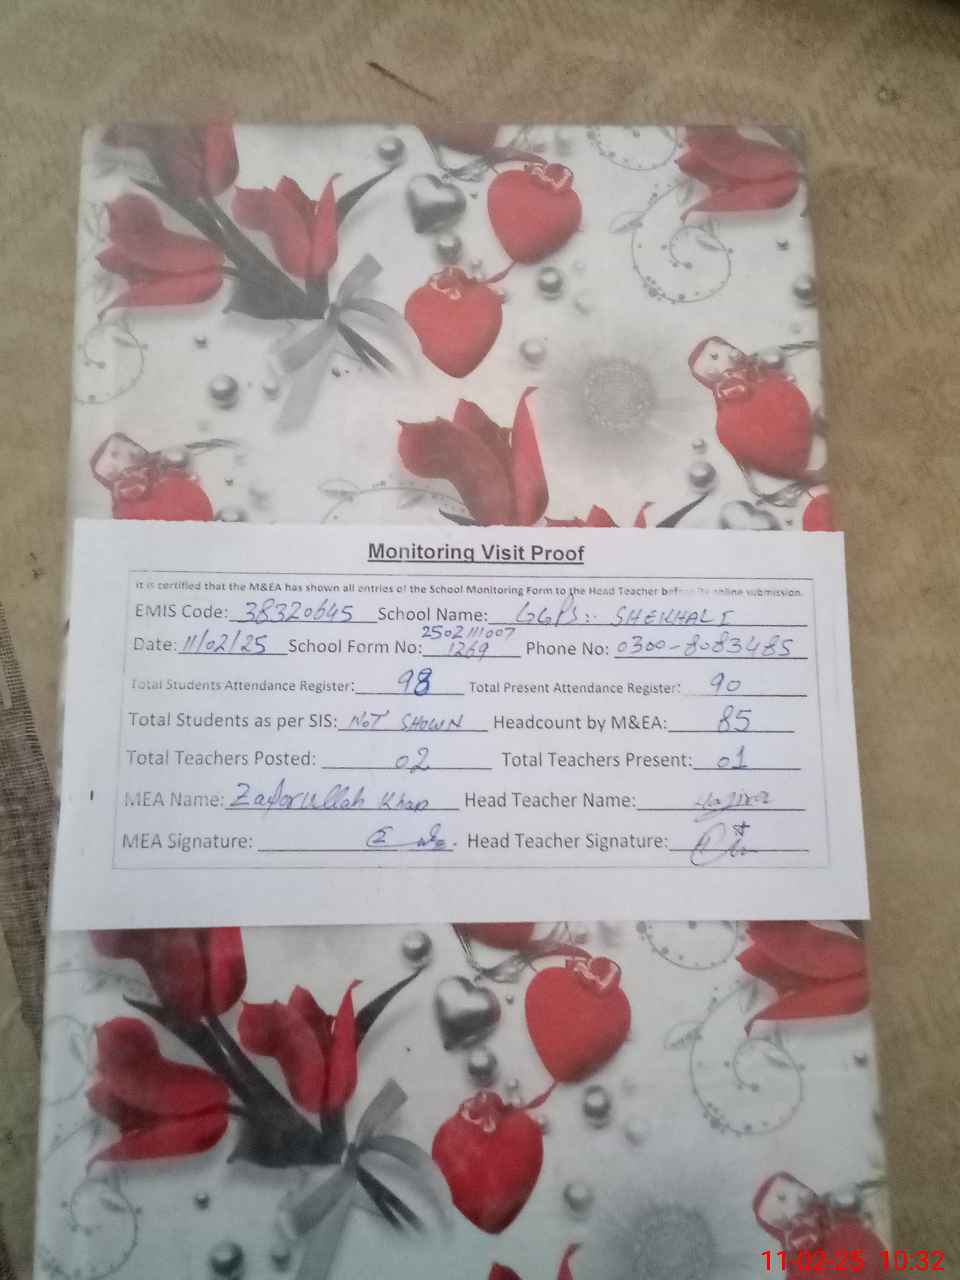 Monitoring Visit Proof
It is certified that the M&EA has shown all entries of the School Monitoring Form to the Head Teacher before its online submission.
EMIS Code: 38320645 School Name: GGPS:- SHEKHALI
2502111007
Date: 11/02/25 School Form No: 1269 Phone No: 0300-8083485
Total Students Attendance Register: 98 Total Present Attendance Register: 90
Total Students as per SIS: NOT SHOWN Headcount by M&EA: 85
Total Teachers Posted: 02 Total Teachers Present: 01
MEA Name: Zafarullah Khan Head Teacher Name:
MEA Signature: Head Teacher Signature:
11-02-25 10:32